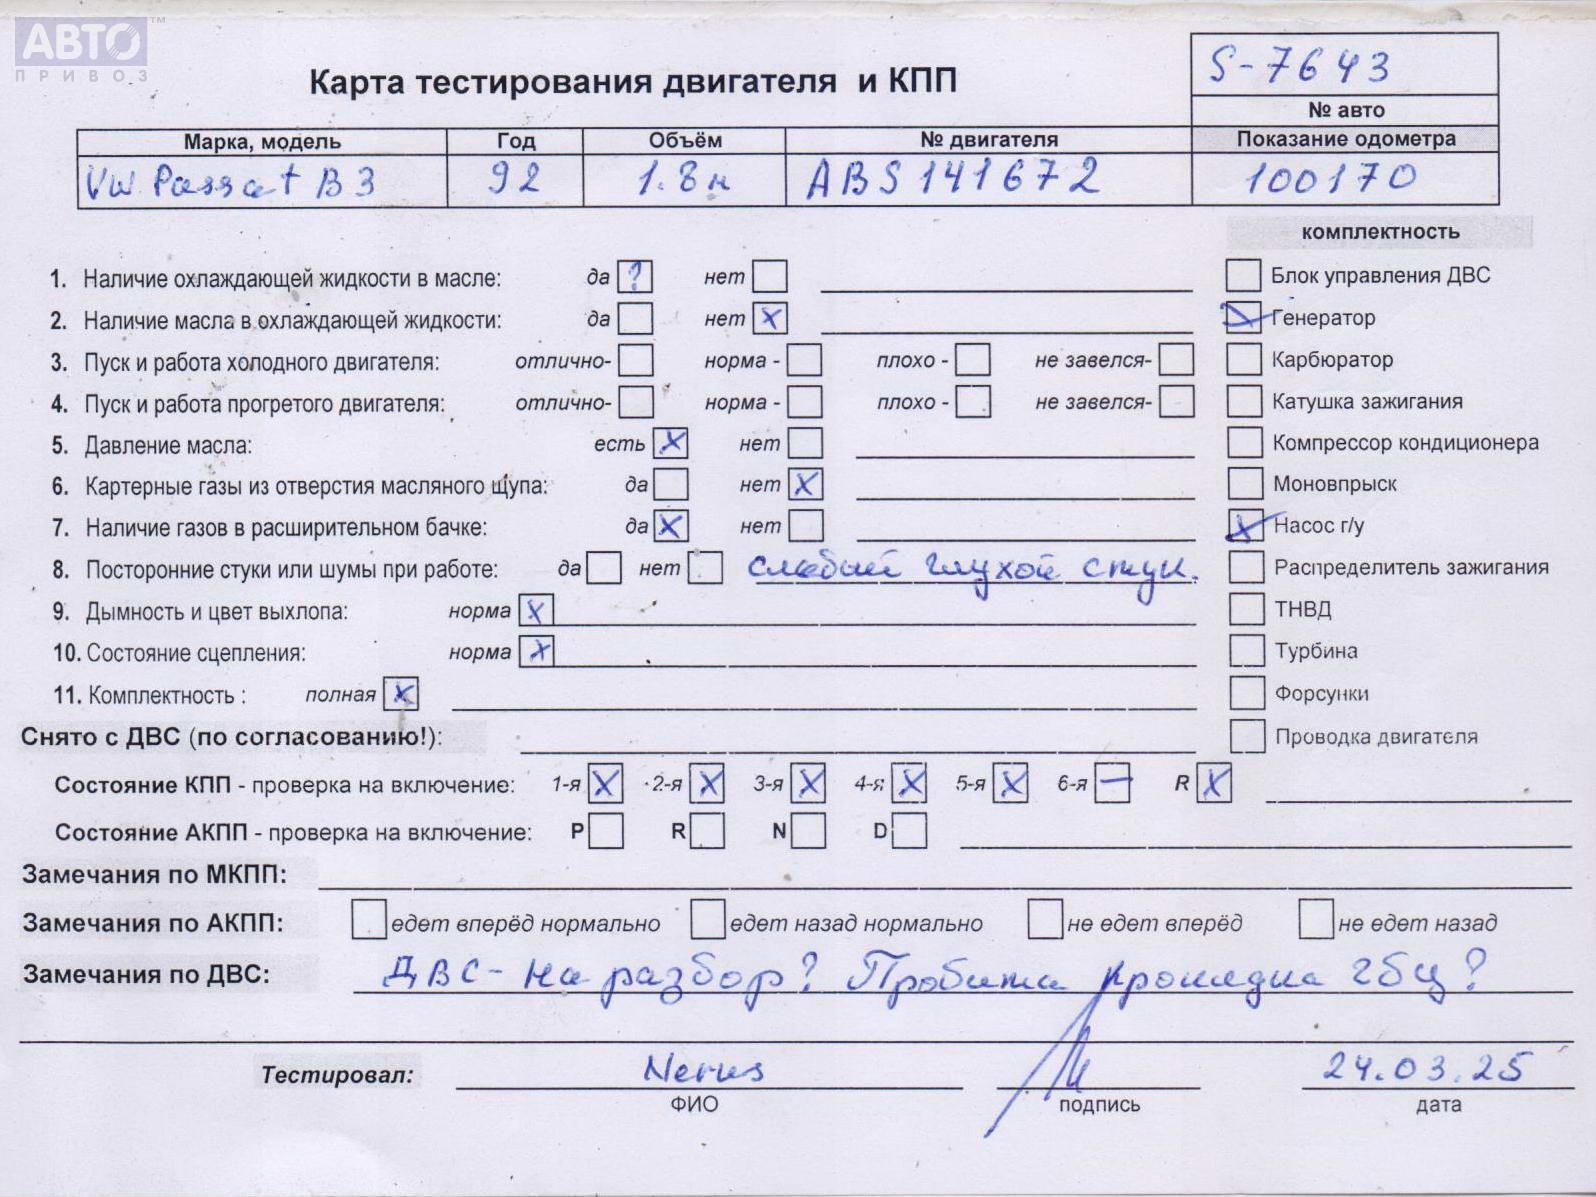 АВТО ™
ПРИВОЗ
Карта тестирования двигателя и КПП
S-7643
№ авто
Марка, модель Год Объём № двигателя Показание одометра
VW Passat B3 92 1.8 ABS141672 100170
комплектность
1. Наличие охлаждающей жидкости в масле: да ? нет
Блок управления ДВС
2. Наличие масла в охлаждающей жидкости: да нет x
Генератор
3. Пуск и работа холодного двигателя: отлично- норма - плохо - не завелся-
Карбюратор
4. Пуск и работа прогретого двигателя: отлично- норма - плохо - не завелся-
Катушка зажигания
5. Давление масла: есть x нет
Компрессор кондиционера
6. Картерные газы из отверстия масляного щупа: да нет x
Моновпрыск
7. Наличие газов в расширительном бачке: да x нет
Насос г/у
8. Посторонние стуки или шумы при работе: да нет слабый глухой стук.
Распределитель зажигания
9. Дымность и цвет выхлопа: норма x
ТНВД
10. Состояние сцепления: норма x
Турбина
11. Комплектность : полная x
Форсунки
Снято с ДВС (по согласованию!):
Проводка двигателя
Состояние КПП - проверка на включение: 1-я x 2-я x 3-я x 4-я x 5-я x 6-я – R x
Состояние АКПП - проверка на включение: P R N D
Замечания по МКПП:
Замечания по АКПП: едет вперёд нормально едет назад нормально не едет вперёд не едет назад
Замечания по ДВС: ДВС - на разбор? Пробита прокладка гбц?
Тестировал: 24.03.25
ФИО подпись дата